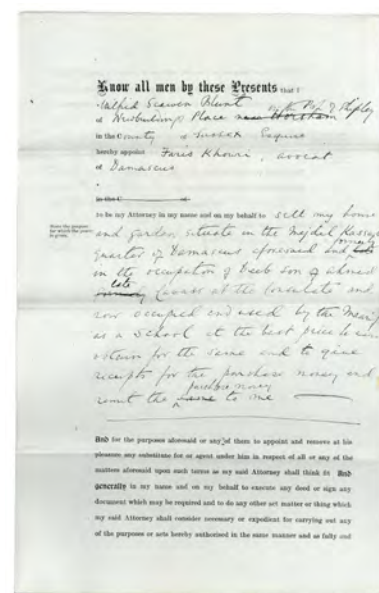 Know all men by these Presents that I
Wilfrid Scawen Blunt
of Newbuildings Place near Horsham in the Psh of Shipley
in the County of Sussex Esquire
hereby appoint Faris Khouri, avocat
of Damascus
in the C of
State the purpose for which the power is given.
to be my Attorney in my name and on my behalf to sell my house
and garden situate in the Mejdel
quarter of Damascus aforesaid and late formerly
in the occupation of Deeb son of Ahmed
formerly late at the Consulate and
now occupied and used by the
as a School at the best price he can
obtain for the same and to give
receipts for the purchase money and
remit the same purchase money to me
And for the purposes aforesaid or any of them to appoint and remove at his
pleasure any substitute for or agent under him in respect of all or any of the
matters aforesaid upon such terms as my said Attorney shall think fit And
generally in my name and on my behalf to execute any deed or sign any
document which may be required and to do any other act matter or thing which
my said Attorney shall consider necessary or expedient for carrying out any
of the purposes or acts hereby authorised in the same manner and as fully and